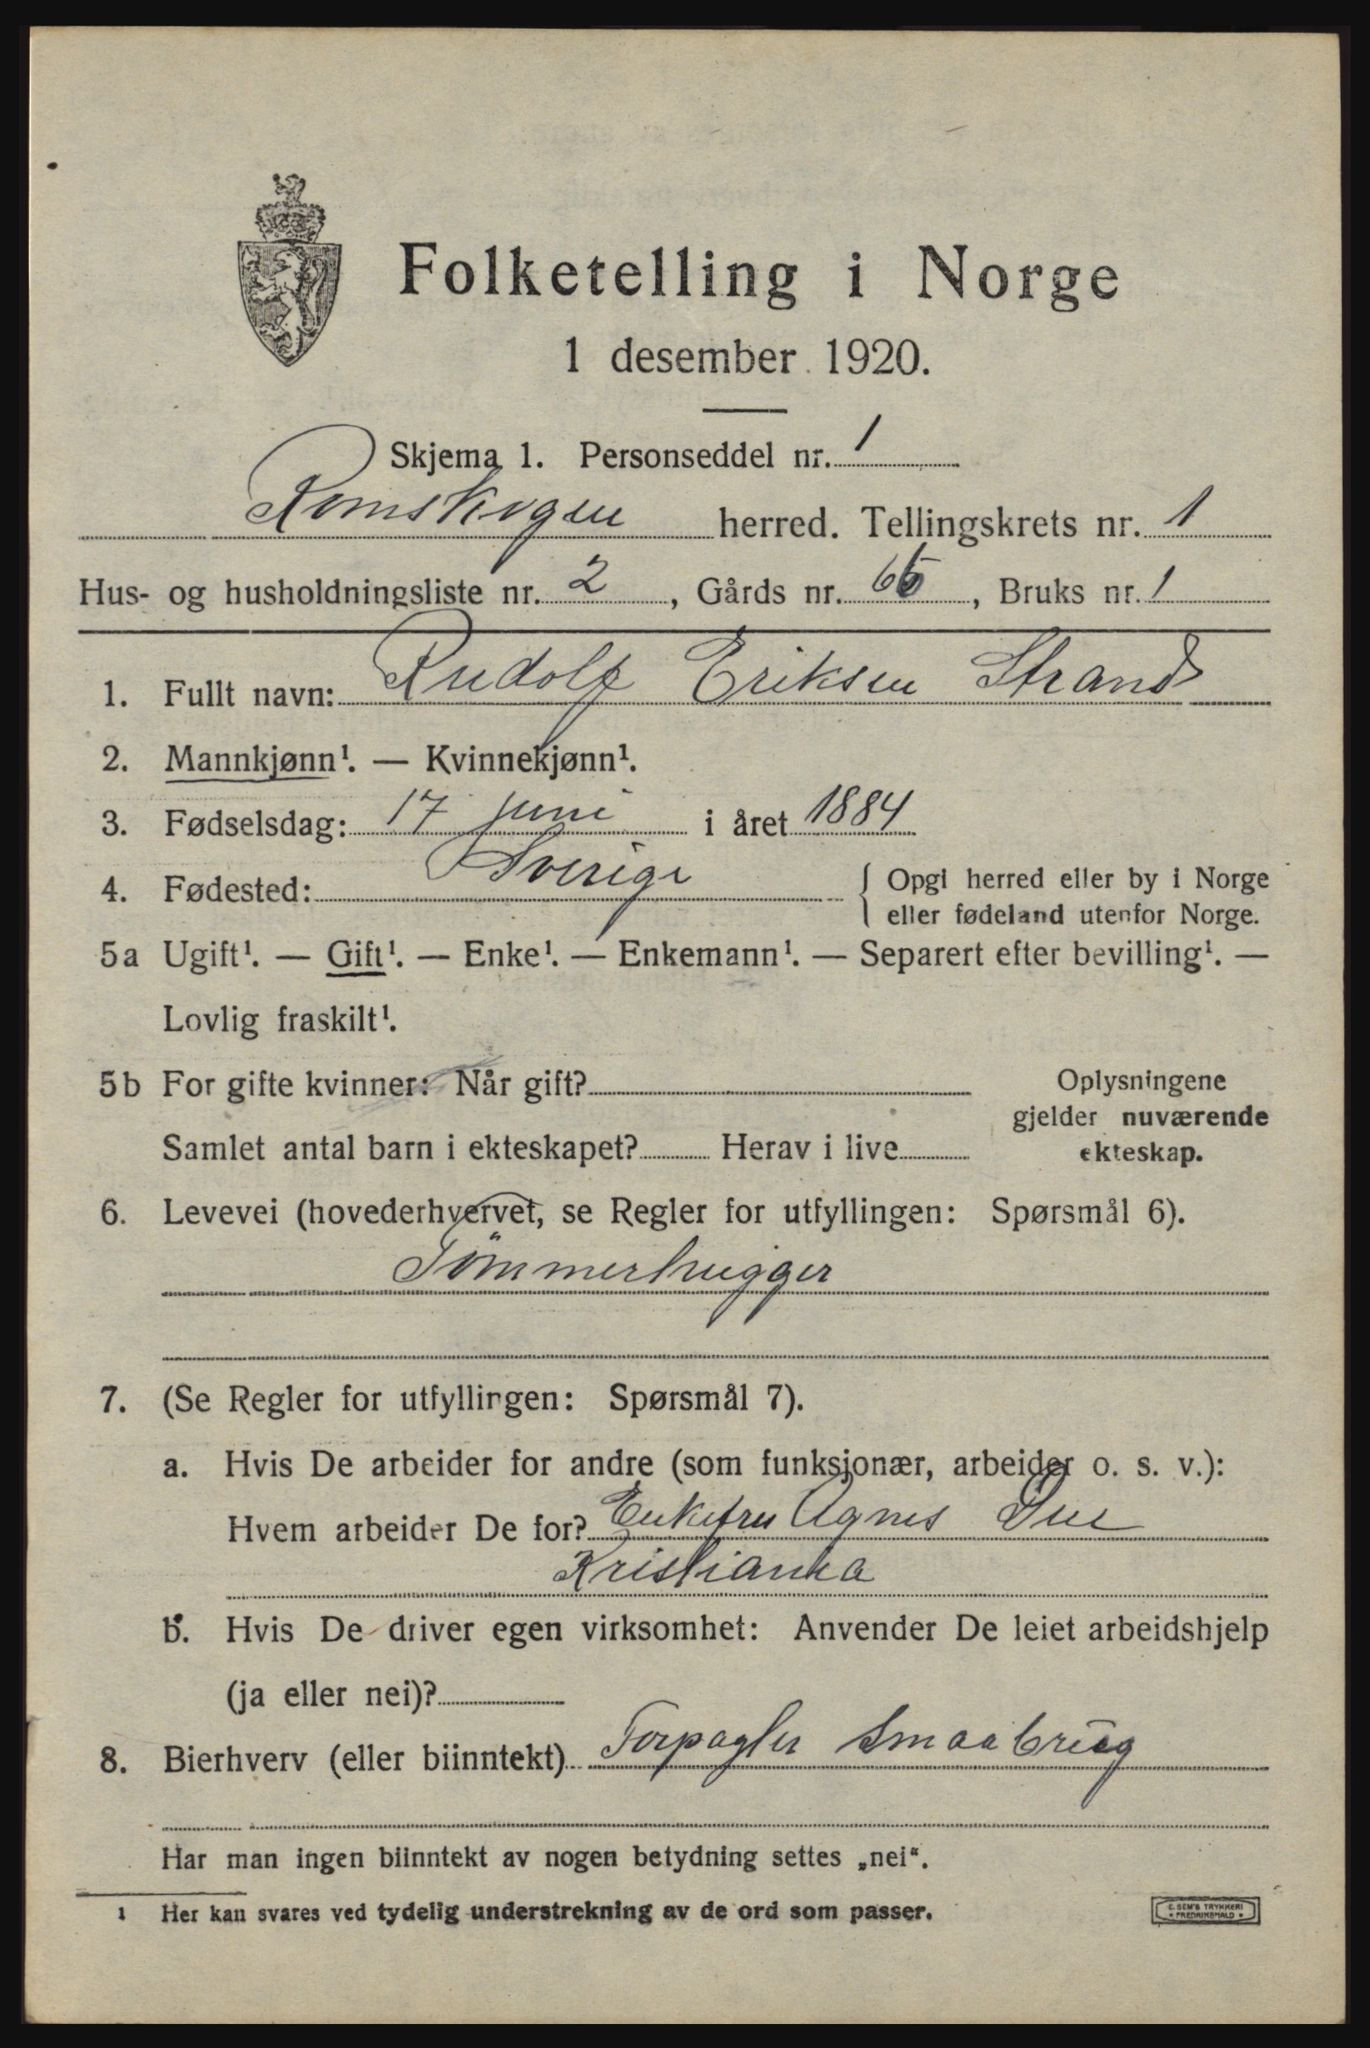 Folketelling i Norge
1 desember 1920.
Skjema 1. Personseddel nr. 1
Romskogen herred. Tellingskrets nr. 1
Hus- og husholdningsliste nr. 2, Gårds nr. 65, Bruks nr. 1
1. Fullt navn: Rudolf Eriksen Strand
2. Mannkjønn¹. — Kvinnekjønn¹.
3. Fødselsdag: 17 juni i året 1884
4. Fødested: Sverige { Opgi herred eller by i Norge
eller fødeland utenfor Norge.
5a Ugift¹. — Gift¹. — Enke¹. — Enkemann¹. — Separert efter bevilling¹. —
Lovlig fraskilt¹.
5b For gifte kvinner: Når gift?
Samlet antal barn i ekteskapet? Herav i live
Oplysningene
gjelder nuværende
ekteskap.
6. Levevei (hovederhvervet, se Regler for utfyllingen: Spørsmål 6).
Tömmerhugger
7. (Se Regler for utfyllingen: Spørsmål 7).
a. Hvis De arbeider for andre (som funksjonær, arbeider o. s. v.):
Hvem arbeider De for? Enkefru Agnes Due
Kristiania
b. Hvis De driver egen virksomhet: Anvender De leiet arbeidshjelp
(ja eller nei)?
8. Bierhverv (eller biinntekt) Forpagter smaabrug
Har man ingen biinntekt av nogen betydning settes „nei“.
1 Her kan svares ved tydelig understrekning av de ord som passer.
C. SEM'S TRYKKERI
* FREDRIKSHALD *